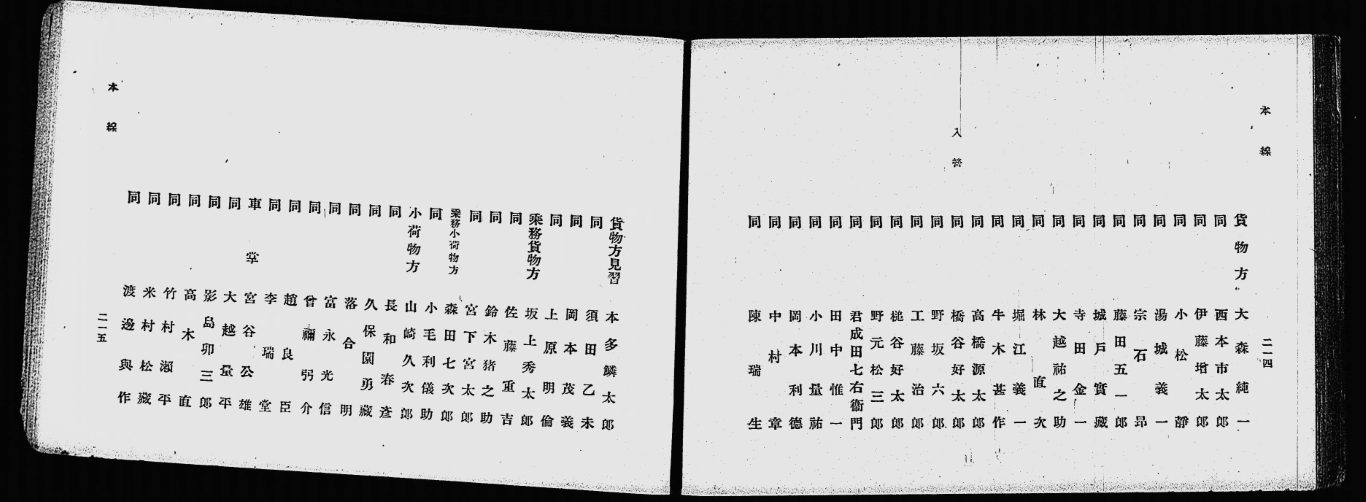 本線
二一四
貨物方 大森純一
同 西本市太郎
同 伊藤增太郎
同 小松靜
同 湯城義一
同 宗石昂
同 藤田五一郎
同 城戸實藏
同 寺田金一
同 大越祐之助
同 林直次
同 堀江義一
同 牛木甚作
同 高橋源太郎
入營 同 橋谷好太郎
同 野坂六郎
同 工藤治郎
同 槌谷好太郎
同 野元松三郎
同 君成田七右衞門
同 田中惟一
同 小川量祐
同 岡本利德
同 中村章
同 陳瑞生
貨物方見習 本多鱗太郎
同 須田乙未
同 岡本茂義
同 上原明倫
乘務貨物方 坂上秀太郎
同 佐藤重吉
同 鈴木猪之助
同 宮下宮太郎
乘務小荷物方 森田七次郎
同 小毛利儀助
小荷物方 山崎久次郎
同 長和春彥
同 久保園勇藏
同 落合明
同 富永光信
同 曾禰介
同 趙良臣
同 李瑞堂
車掌 宮谷公雄
同 大越量平
同 影島卯三郎
同 高木直
同 竹村淑平
同 米村松藏
同 渡邊與作
本線
二一五